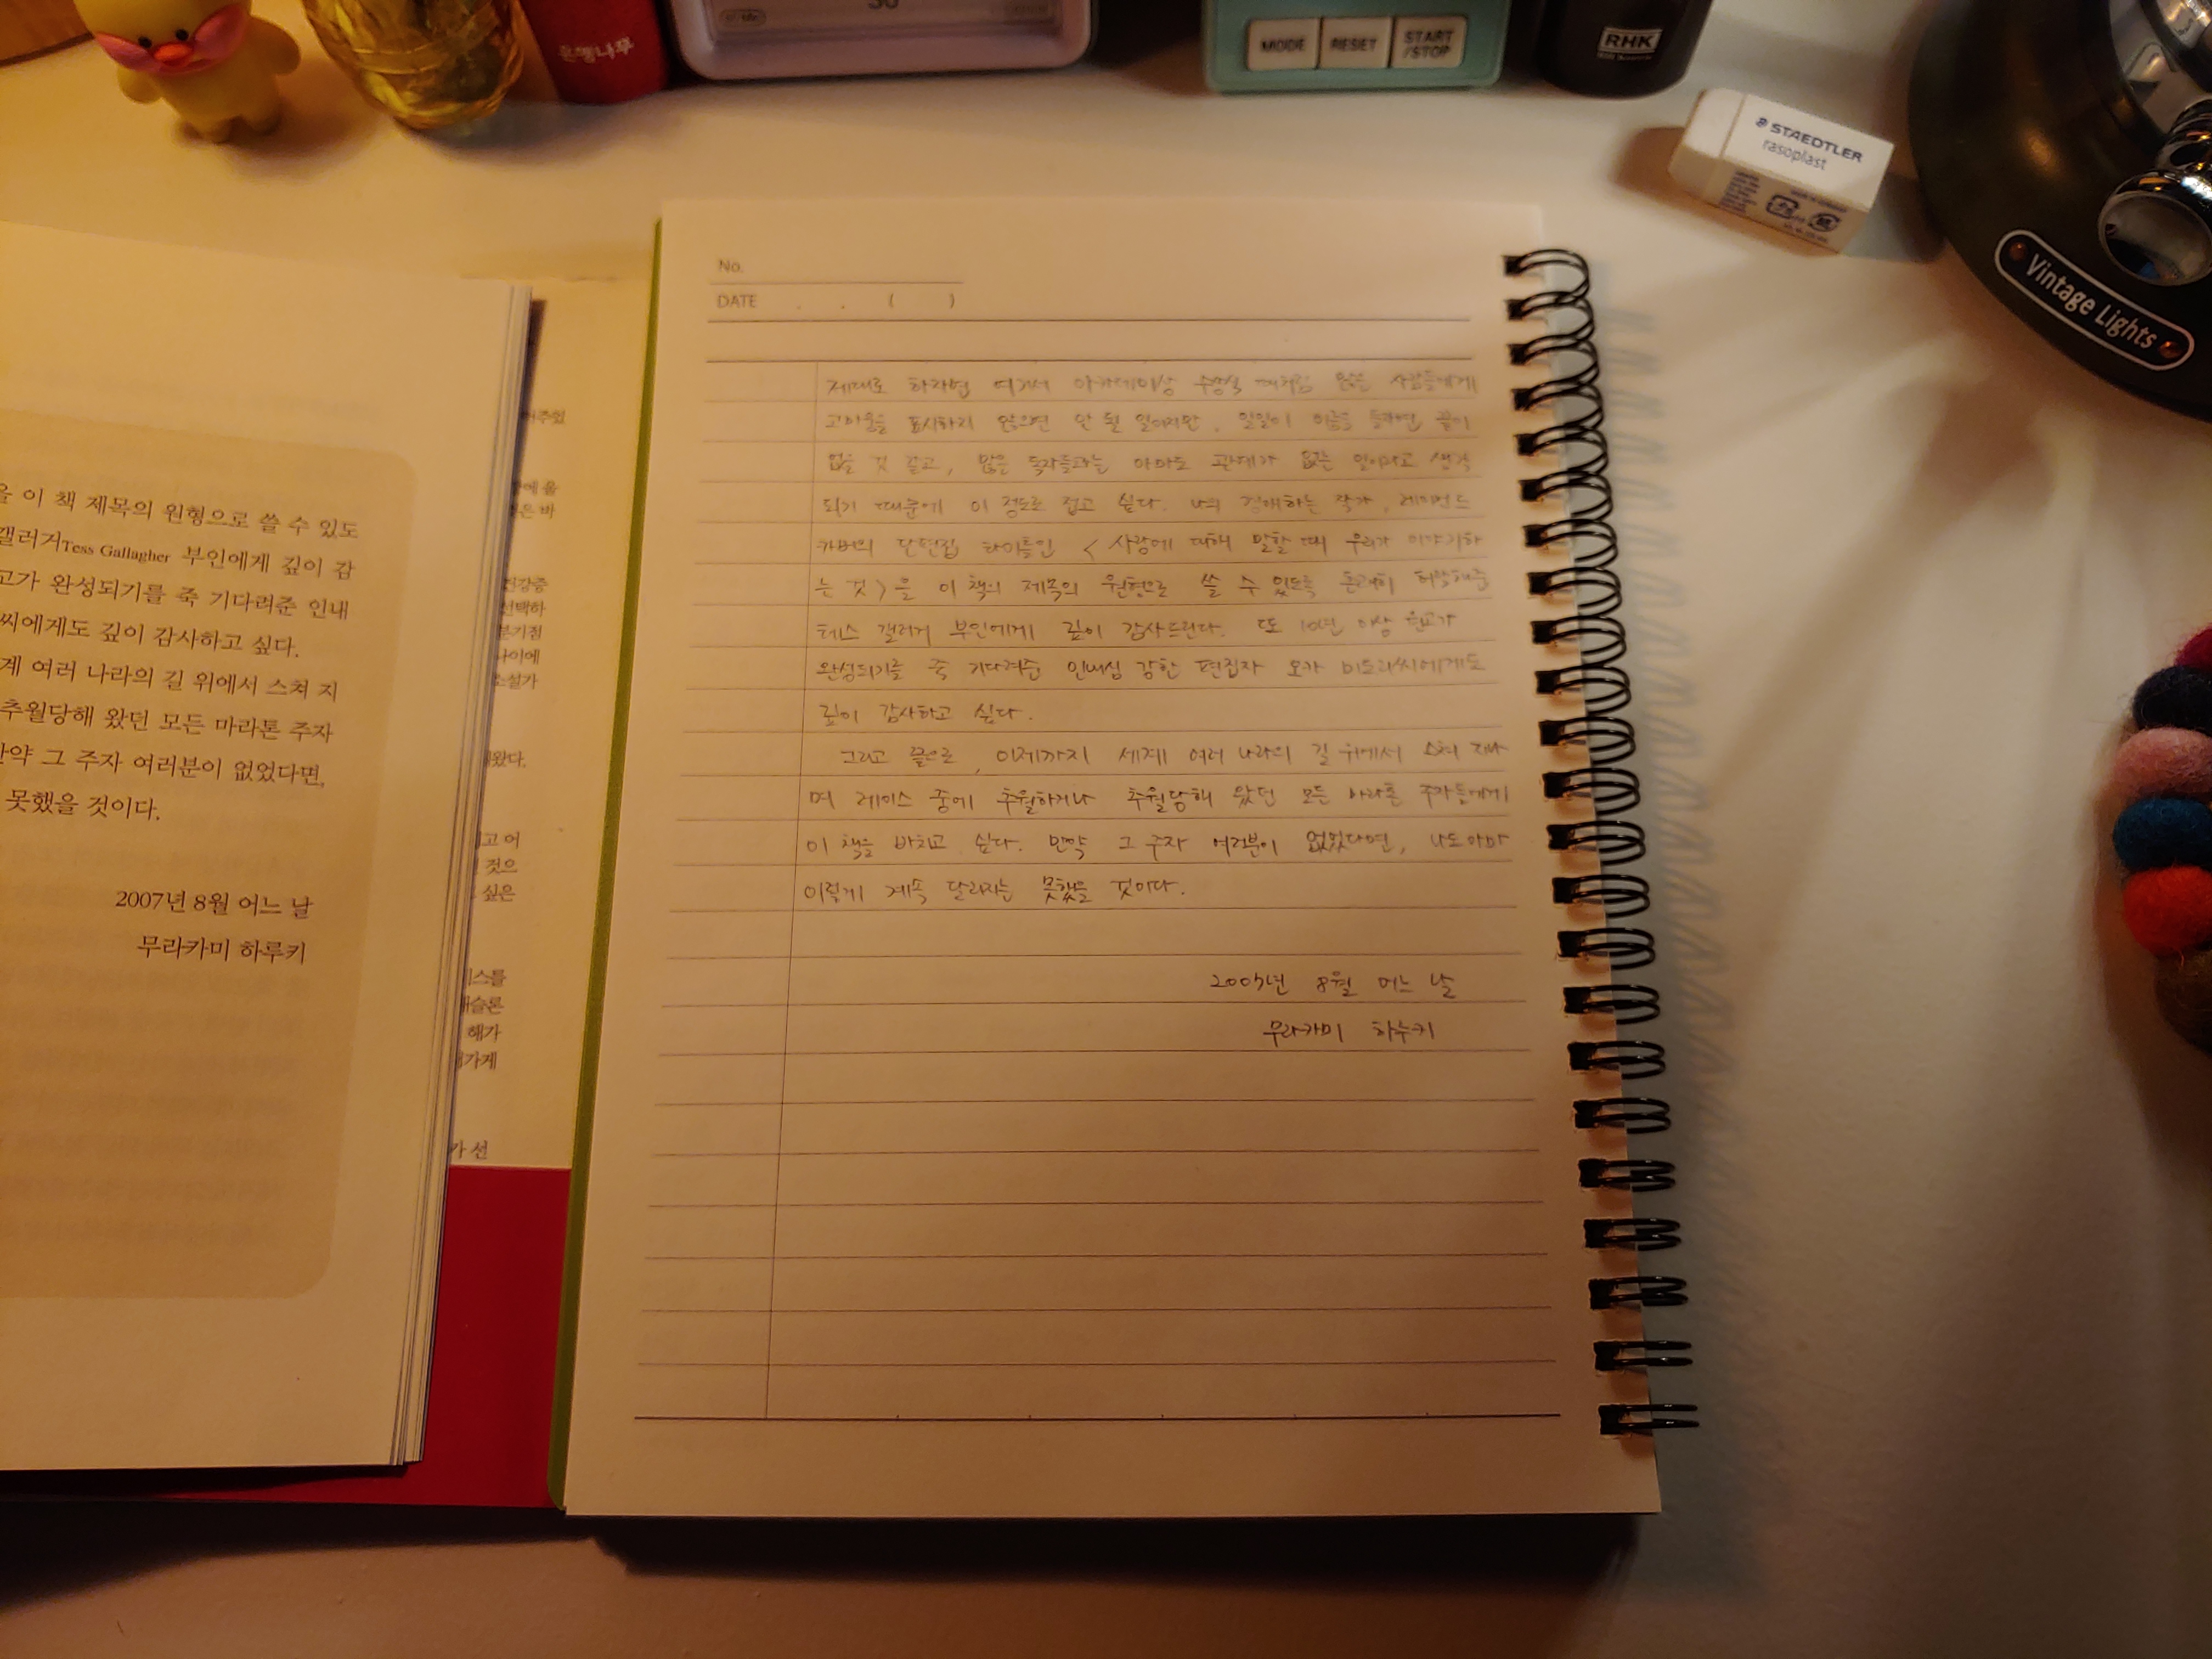 은행나무
30
MODE
RESET
START
/STOP
RHK
STAEDTLER
rasoplast
Vintage Lights
을 이 책 제목의 원형으로 쓸 수 있도
갤러거Tess Gallagher 부인에게 깊이 감
고가 완성되기를 죽 기다려준 인내
씨에게도 깊이 감사하고 싶다.
계 여러 나라의 길 위에서 스쳐 지
추월당해 왔던 모든 마라톤 주자
만약 그 주자 여러분이 없었다면,
못했을 것이다.
2007년 8월 어느 날
무라카미 하루키
어주었
에 올
은 바
건강증
선택하
분기점
나이에
소설가
왔다.
고 어
것으
싶은
스를
애슬론
해가
가게
가 선
No.
DATE . . ( )
제대로 하려면 여기서 수 많은 사람들에게
고마움을 표시하지 않으면 안 될 일이지만, 일일이 이름을 들자면 끝이
없을 것 같고, 많은 독자들과는 아마도 관계가 없는 일이라고 생각
되기 때문에 이 정도로 접고 싶다. 나의 경애하는 작가, 레이먼드
카버의 단편집 타이틀인 <사랑에 대해 말할 때 우리가 이야기하
는 것>을 이 책의 제목의 원형으로 쓸 수 있도록 흔쾌히 허락해준
테스 갤러거 부인에게 깊이 감사드린다. 또 10년 이상 원고가
완성되기를 죽 기다려준 인내심 강한 편집자 오카 미도리씨에게도
깊이 감사하고 싶다.
그리고 끝으로, 이제까지 세계 여러 나라의 길 위에서 스쳐 지나
며 레이스 중에 추월하거나 추월당해 왔던 모든 마라톤 주자들에게
이 책을 바치고 싶다. 만약 그 주자 여러분이 없었다면, 나도 아마
이렇게 계속 달리지는 못했을 것이다.
2007년 8월 어느 날
무라카미 하루키